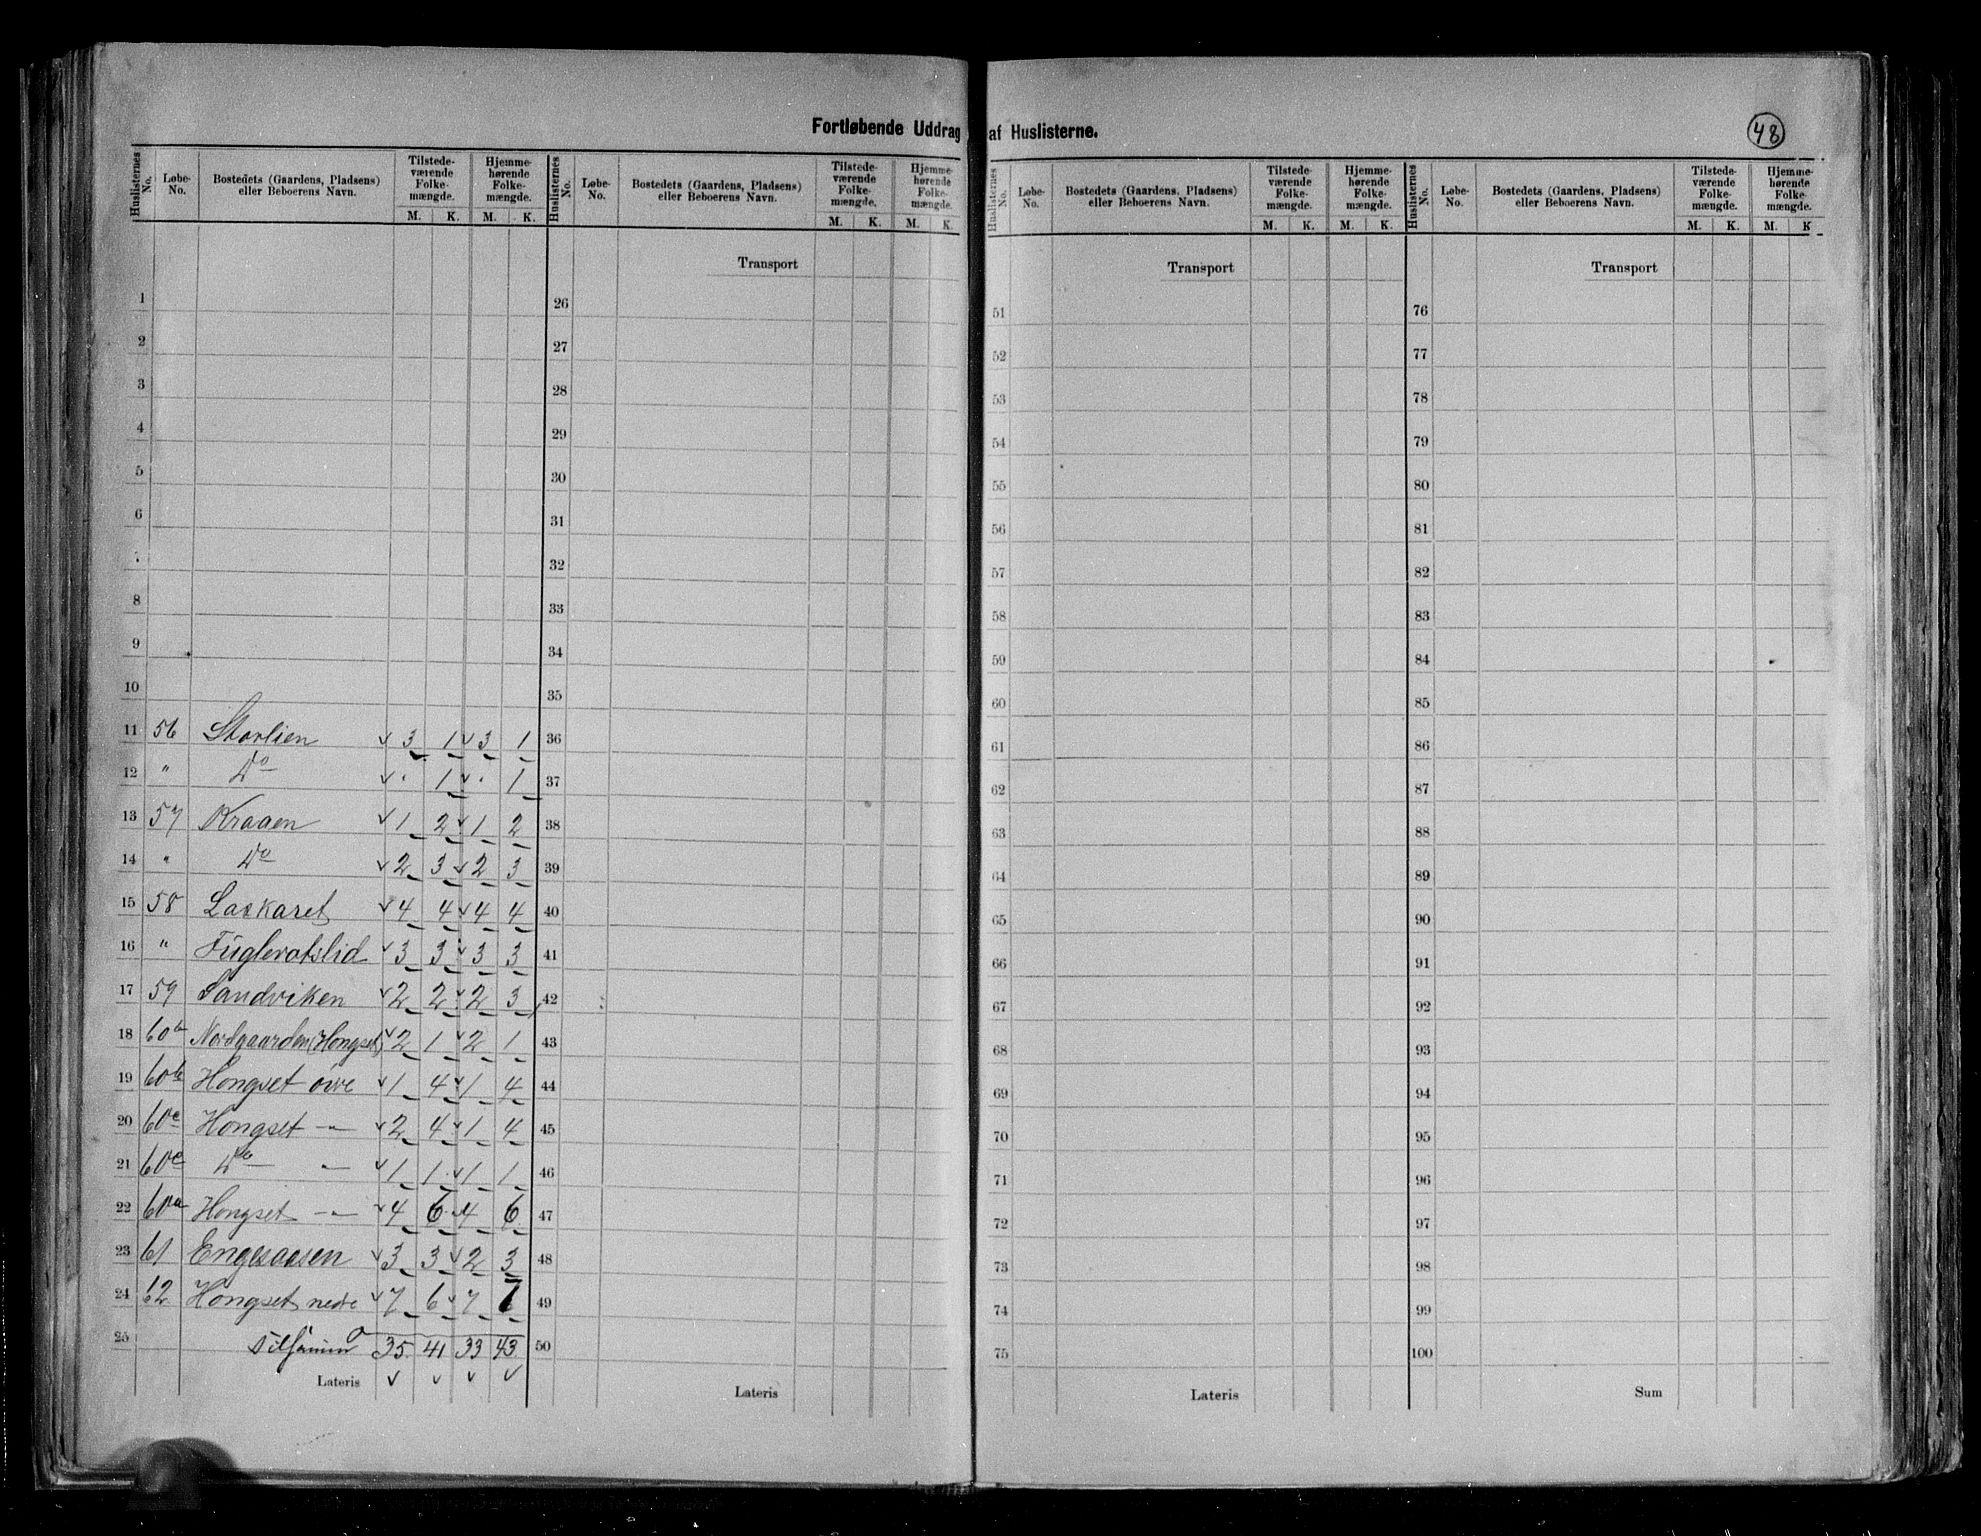 Fortløbende Uddrag af Huslisterne.
48
Huslisternes No. Løbe-No. Bostedets (Gaardens, Pladsens) eller Beboerens Navn. Tilstedeværende Folkemængde. M. K. Hjemmehørende Folkemængde. M. K.
Huslisternes No. Løbe-No. Bostedets (Gaardens, Pladsens) eller Beboerens Navn. Tilstedeværende Folkemængde. M. K. Hjemmehørende Folkemængde. M. K.
Huslisternes No. Løbe-No. Bostedets (Gaardens, Pladsens) eller Beboerens Navn. Tilstedeværende Folkemængde. M. K. Hjemmehørende Folkemængde. M. K.
Huslisternes No. Løbe-No. Bostedets (Gaardens, Pladsens) eller Beboerens Navn. Tilstedeværende Folkemængde. M. K. Hjemmehørende Folkemængde. M. K
Transport Transport Transport
1 26 51 76
2 27 52 77
3 28 53 78
4 29 54 79
5 30 55 80
6 31 56 81
7 32 57 82
8 33 58 83
9 34 59 84
10 35 60 85
11 56 Storlien 3 1 3 1 36 61 86
12 " Do · 1 · 1 37 62 87
13 57 Kraaen 1 2 1 2 38 63 88
14 " Do 2 3 2 3 39 64 89
15 58 Laskaret 4 4 4 4 40 65 90
16 " Fuglevatslid 3 3 3 3 41 66 91
17 59 Sandviken 2 2 2 3 42 67 92
18 60 Nordgaarden (Hongset) 2 1 2 1 43 68 93
19 60b Hongset övre 1 4 1 4 44 69 94
20 60c Hongset -"- 2 4 1 4 45 70 95
21 60c Do -"- 1 1 1 1 46 71 96
22 60a Hongset -"- 4 6 4 6 47 72 97
23 61 Engesaasen 3 3 2 3 48 73 98
24 62 Hongset nedre 7 6 7 7 49 74 99
25 35 41 33 43 50 75 100
Lateris Lateris Lateris Sum